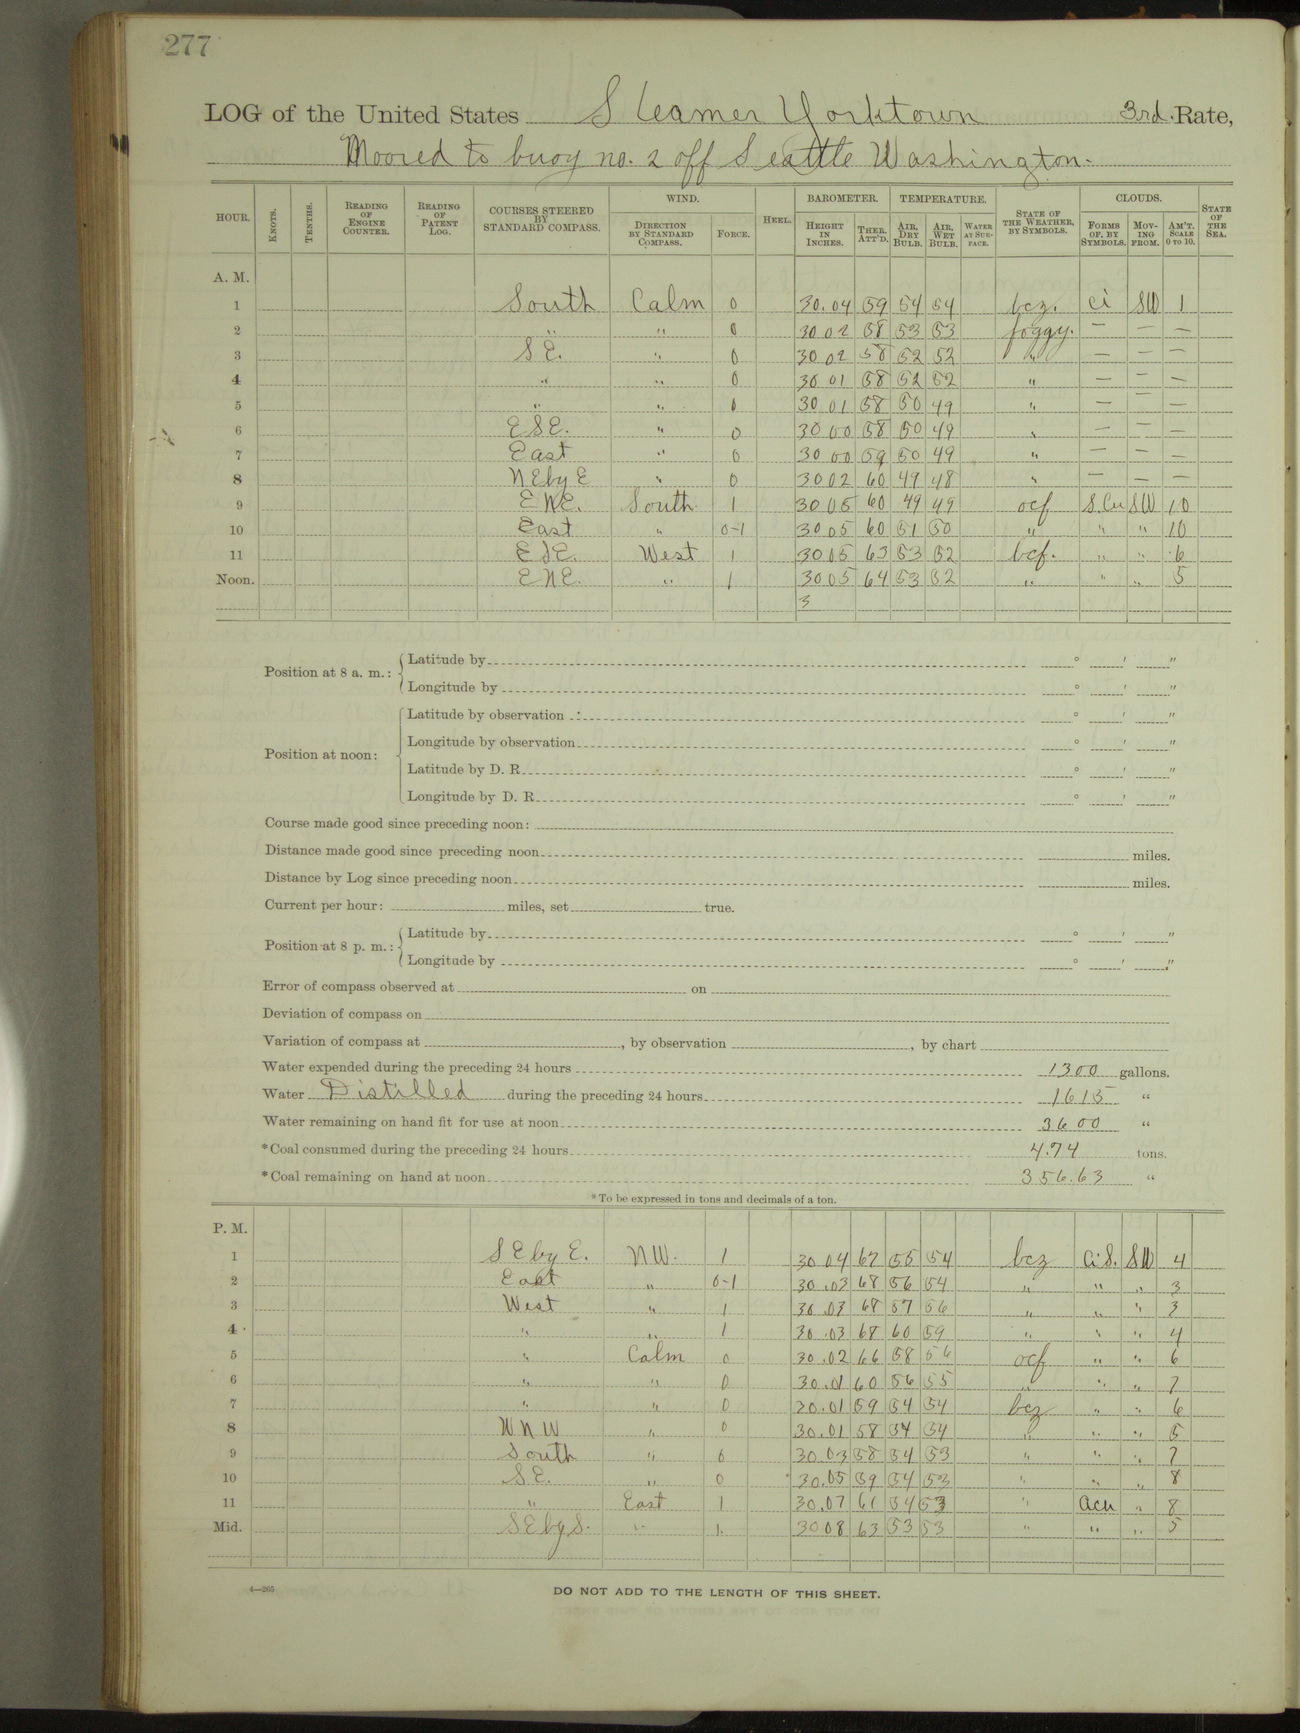 277
LOG of the United States Steamer Yorktown 3rd. Rate,
Moored to buoy no. 2 off Seattle Washington.
HOUR. KNOTS. TENTHS. READING OF ENGINE COUNTER. READING OF PATENT LOG. COURSES STEERED BY STANDARD COMPASS. WIND. DIRECTION BY STANDARD COMPASS. FORCE. HEEL. BAROMETER. HEIGHT IN INCHES. THER. ATT'D. TEMPERATURE. AIR, DRY BULB. AIR, WET BULB. WATER AT SURFACE. STATE OF THE WEATHER, BY SYMBOLS. CLOUDS. FORMS OF, BY SYMBOLS. MOVING FROM. AM'T. SCALE 0 TO 10. STATE OF THE SEA.
A. M.
1 South Calm 0 30.04 59 54 54 bcz. Ci SW 1
2 " " 0 30 02 58 53 53 foggy. — — —
3 S E. " 0 30 02 58 52 52 " — — —
4 " " 0 30 01 58 52 52 " — — —
5 " " 0 30 01 58 50 49 " — — —
6 E S E. " 0 30 00 58 50 49 " — — —
7 East " 0 30 00 59 50 49 " — — —
8 N E by E " 0 30 02 60 49 48 " — — —
9 E N E. South 1 30 05 60 49 49 ocf S.Cu SW 10
10 East " 0-1 30 05 60 51 50 " " " 10
11 E S E. West 1 30 05 63 53 52 bcf. " " 6
Noon. E N E. " 1 30 05 64 53 52 " " " 5
3
Position at 8 a. m.: Latitude by ° ′ ″
Longitude by ° ′ ″
Position at noon: Latitude by observation ° ′ ″
Longitude by observation ° ′ ″
Latitude by D. R. ° ′ ″
Longitude by D. R. ° ′ ″
Course made good since preceding noon:
Distance made good since preceding noon miles.
Distance by Log since preceding noon miles.
Current per hour: miles, set true.
Position at 8 p. m.: Latitude by ° ′ ″
Longitude by ° ′ ″
Error of compass observed at on
Deviation of compass on
Variation of compass at , by observation , by chart
Water expended during the preceding 24 hours 1300 gallons.
Water Distilled during the preceding 24 hours 1615 "
Water remaining on hand fit for use at noon 3600 "
*Coal consumed during the preceding 24 hours 4.74 tons.
*Coal remaining on hand at noon 356.63 "
*To be expressed in tons and decimals of a ton.
P. M.
1 S E by E. N W. 1 30 04 67 55 54 bcz Ci S. SW 4
2 East " 0-1 30.03 68 56 54 " " " 3
3 West " 1 30.03 68 57 56 " " " 3
4 " " 1 30.03 68 60 59 " " " 4
5 " Calm 0 30.02 66 58 56 ocf " " 6
6 " " 0 30.01 60 56 55 " " " 7
7 " " 0 20.01 59 54 54 bcz " " 6
8 W N W " 0 30.01 58 54 54 " " " 5
9 South " 0 30.03 58 54 53 " " " 7
10 S E. " 0 30.05 59 54 53 " " " 8
11 " East 1 30.07 61 54 53 " Acu " 8
Mid. S E by S. " 1. 30 08 63 53 53 " " " 5
4—265
DO NOT ADD TO THE LENGTH OF THIS SHEET.